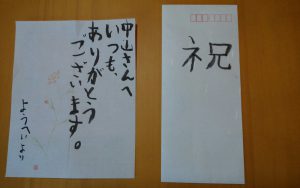 中山さんへ
いつも、
ありがとう
ございます。
ようへいより
祝